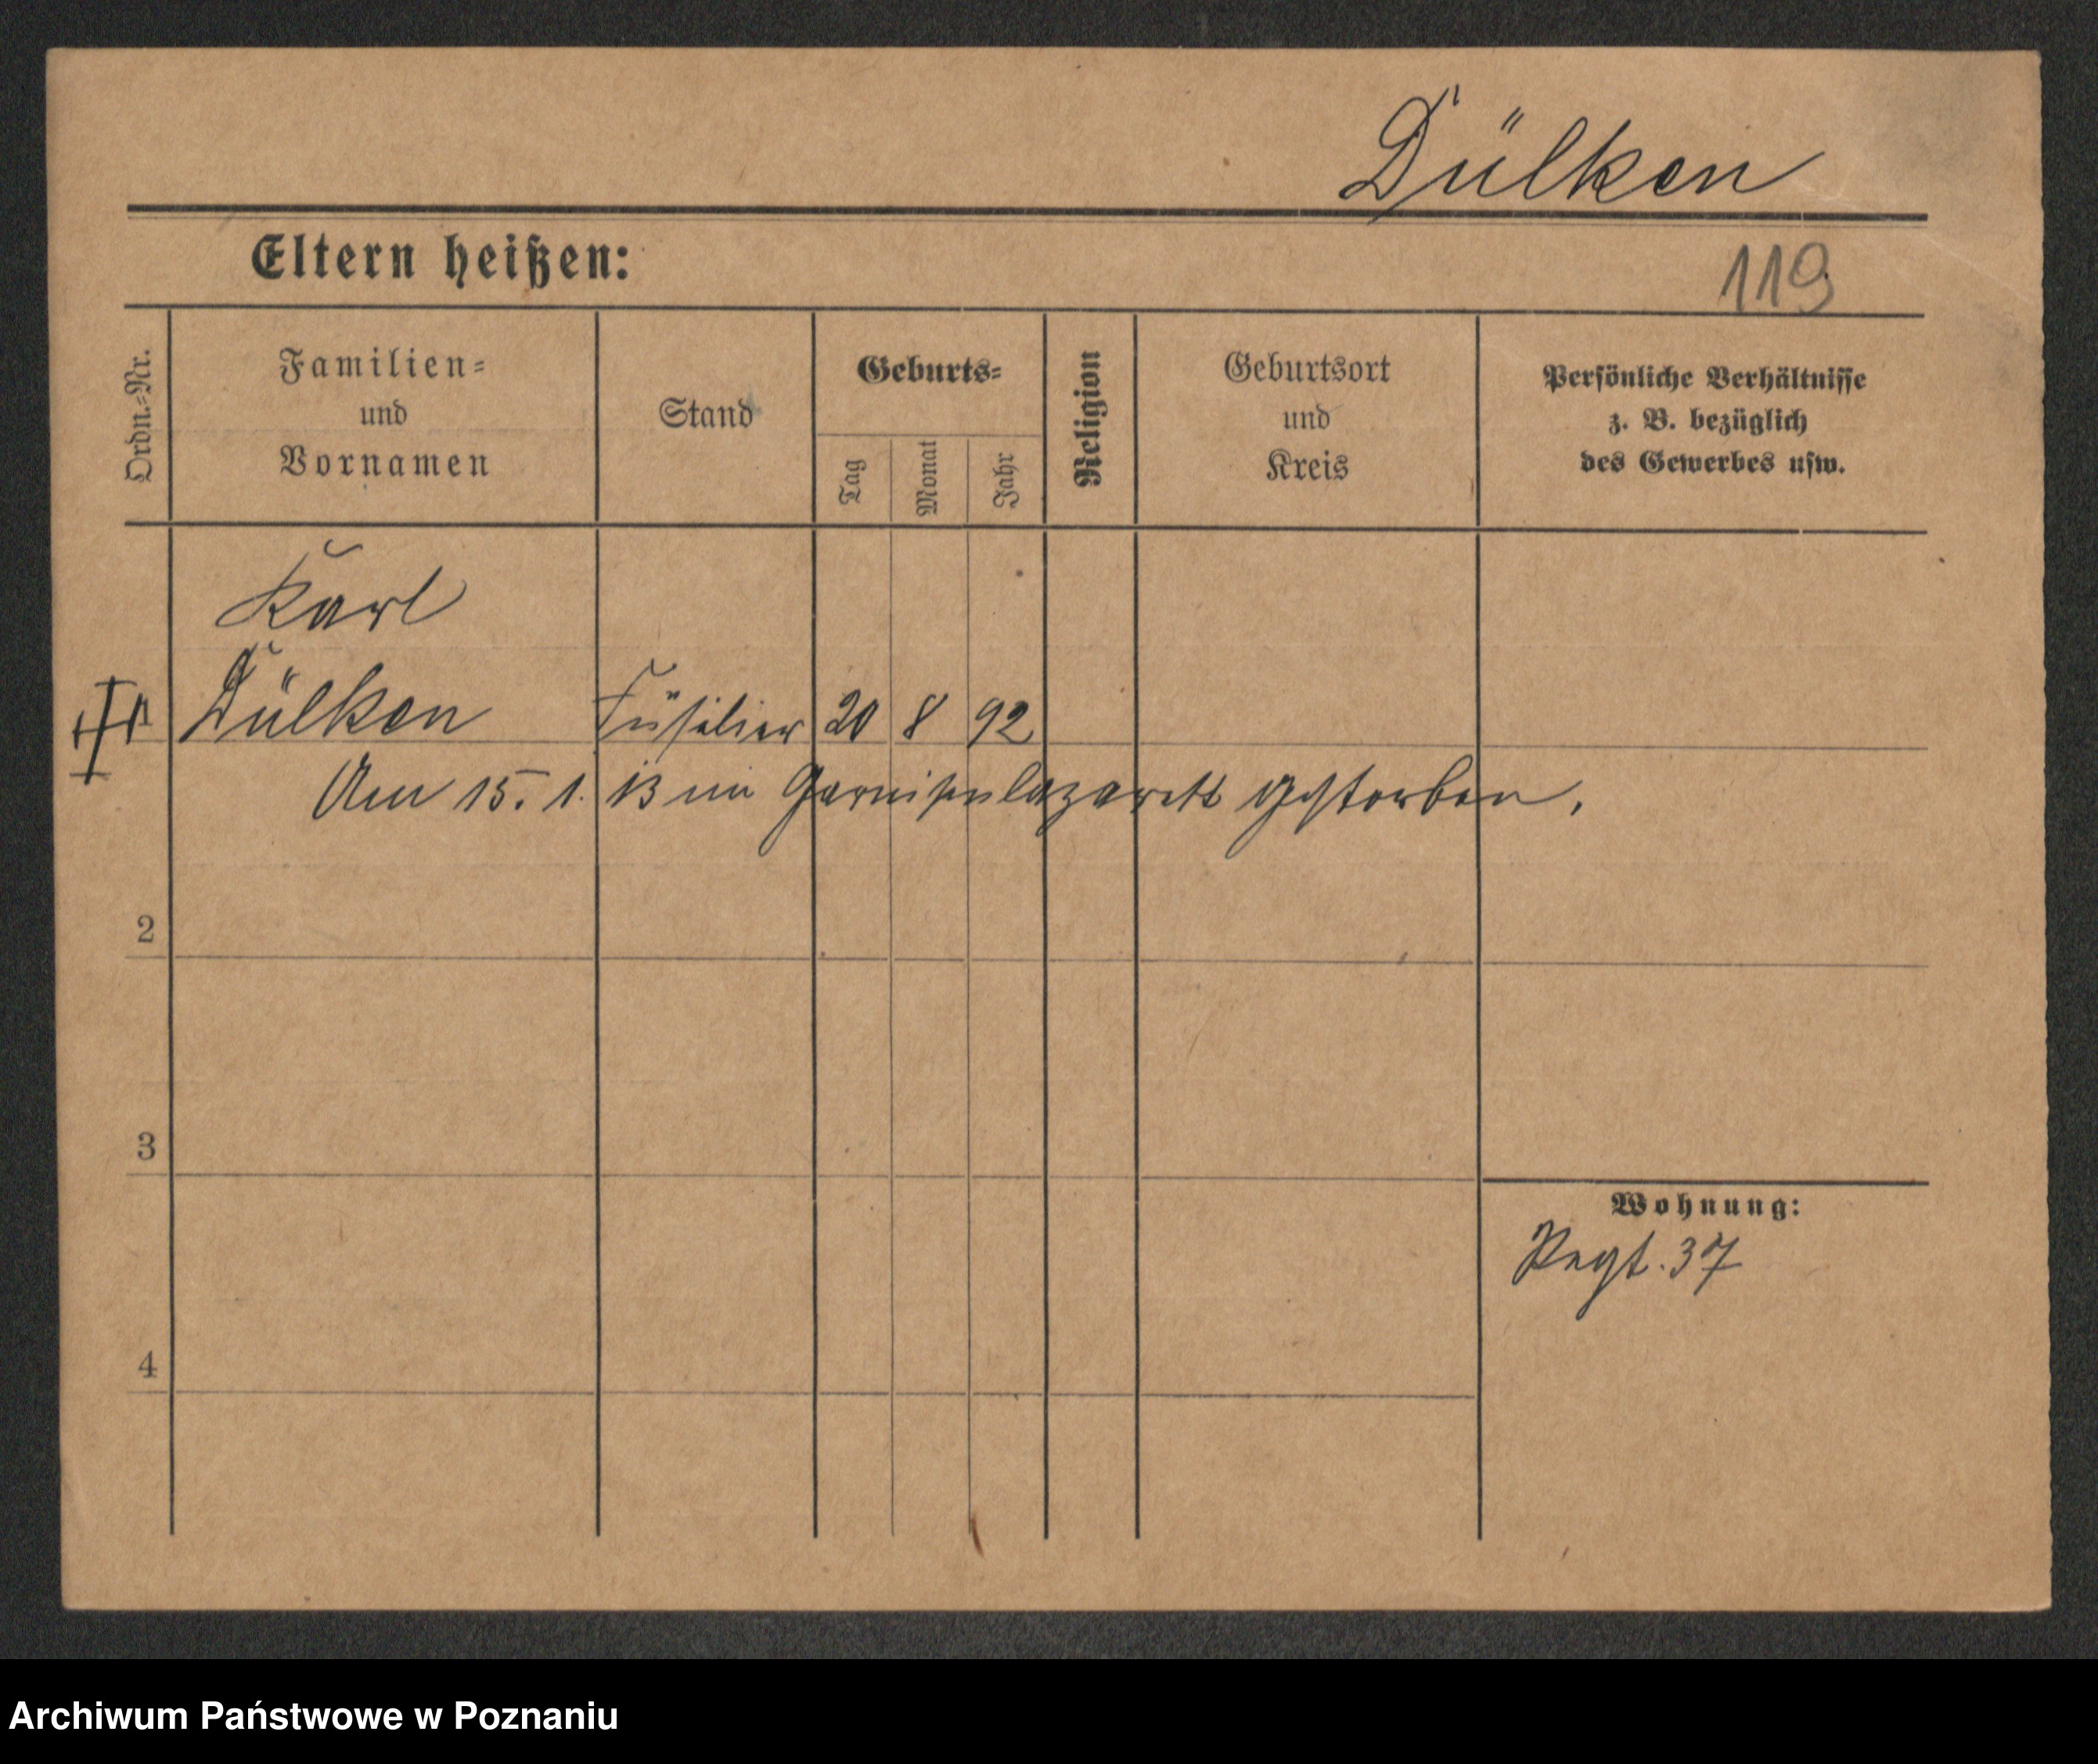 Dülken
Eltern heißen:
119
Ordn.-Nr.
Familien-
und
Vornamen
Stand
Geburts-
Tag
Monat
Jahr
Religion
Geburtsort
und
Kreis
Persönliche Verhältnisse
z. B. bezüglich
des Gewerbes usw.
Karl
1 Dülken Füsilier 20 8 92
Am 15. 1. 13 im Garnisonlazarett gestorben.
2
3
Wohnung:
Regt. 37
4
Archiwum Państwowe w Poznaniu